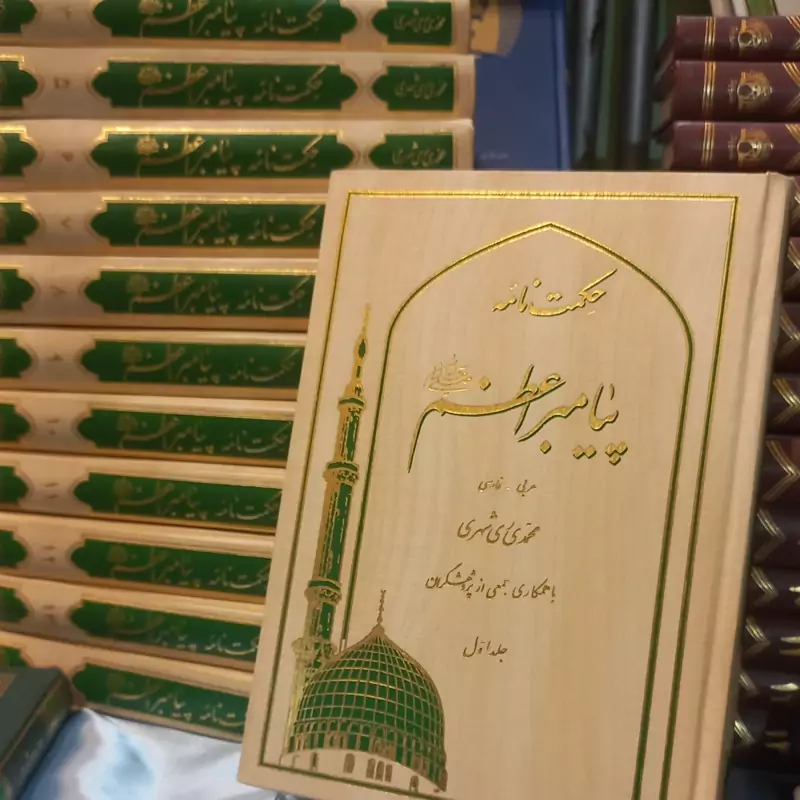 حکمت نامه
پیامبر اعظم
عربی - فارسی
محمدی ری شهری
با همکاری جمعی از پژوهشگران
جلد اول
حکمت نامه پیامبر اعظم محمدی ری شهری
حکمت نامه پیامبر اعظم محمدی ری شهری
حکمت نامه پیامبر اعظم محمدی ری شهری
حکمت نامه پیامبر اعظم
حکمت نامه پیامبر اعظم
حکمت نامه پیامبر اعظم
حکمت نامه پیامبر اعظم
حکمت نامه پیامبر اعظم
حکمت نامه پیامبر اعظم
حکمت نامه پیامبر اعظم
حکمت نامه پیامبر اعظم